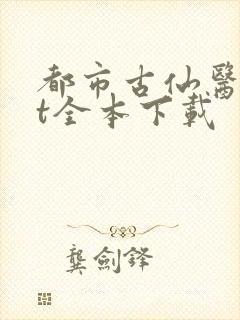 都市古仙醫
t全本下載
龔劍鋒